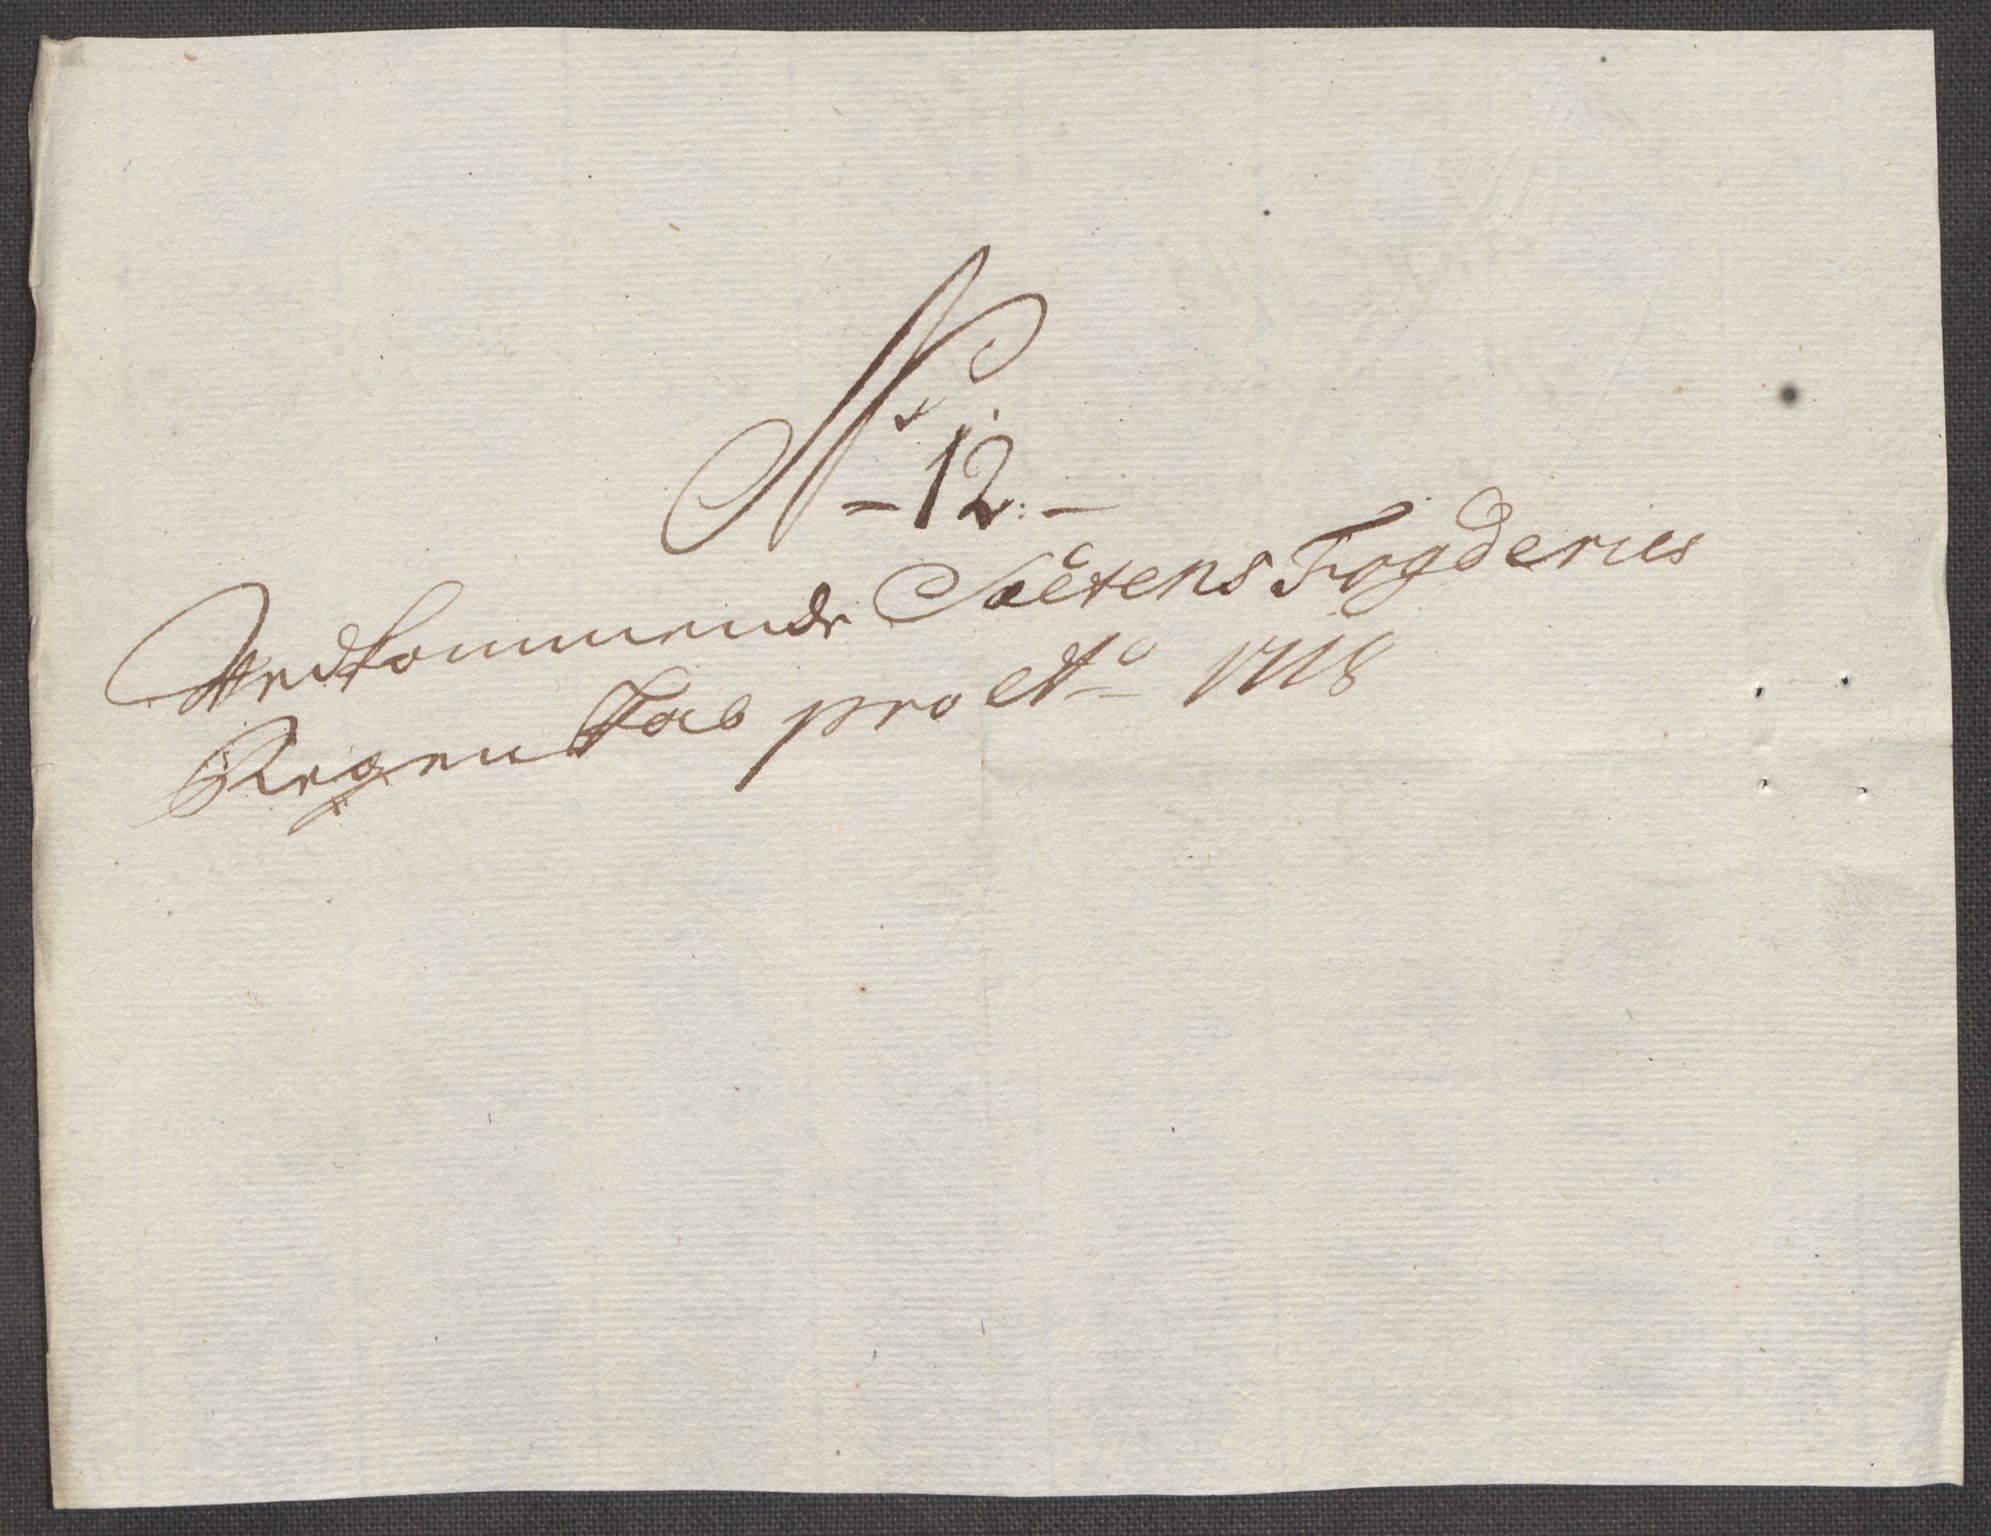 No
- 12: -
Vedkommende Saltens Fogderies
Regenskab pro Ao 1718